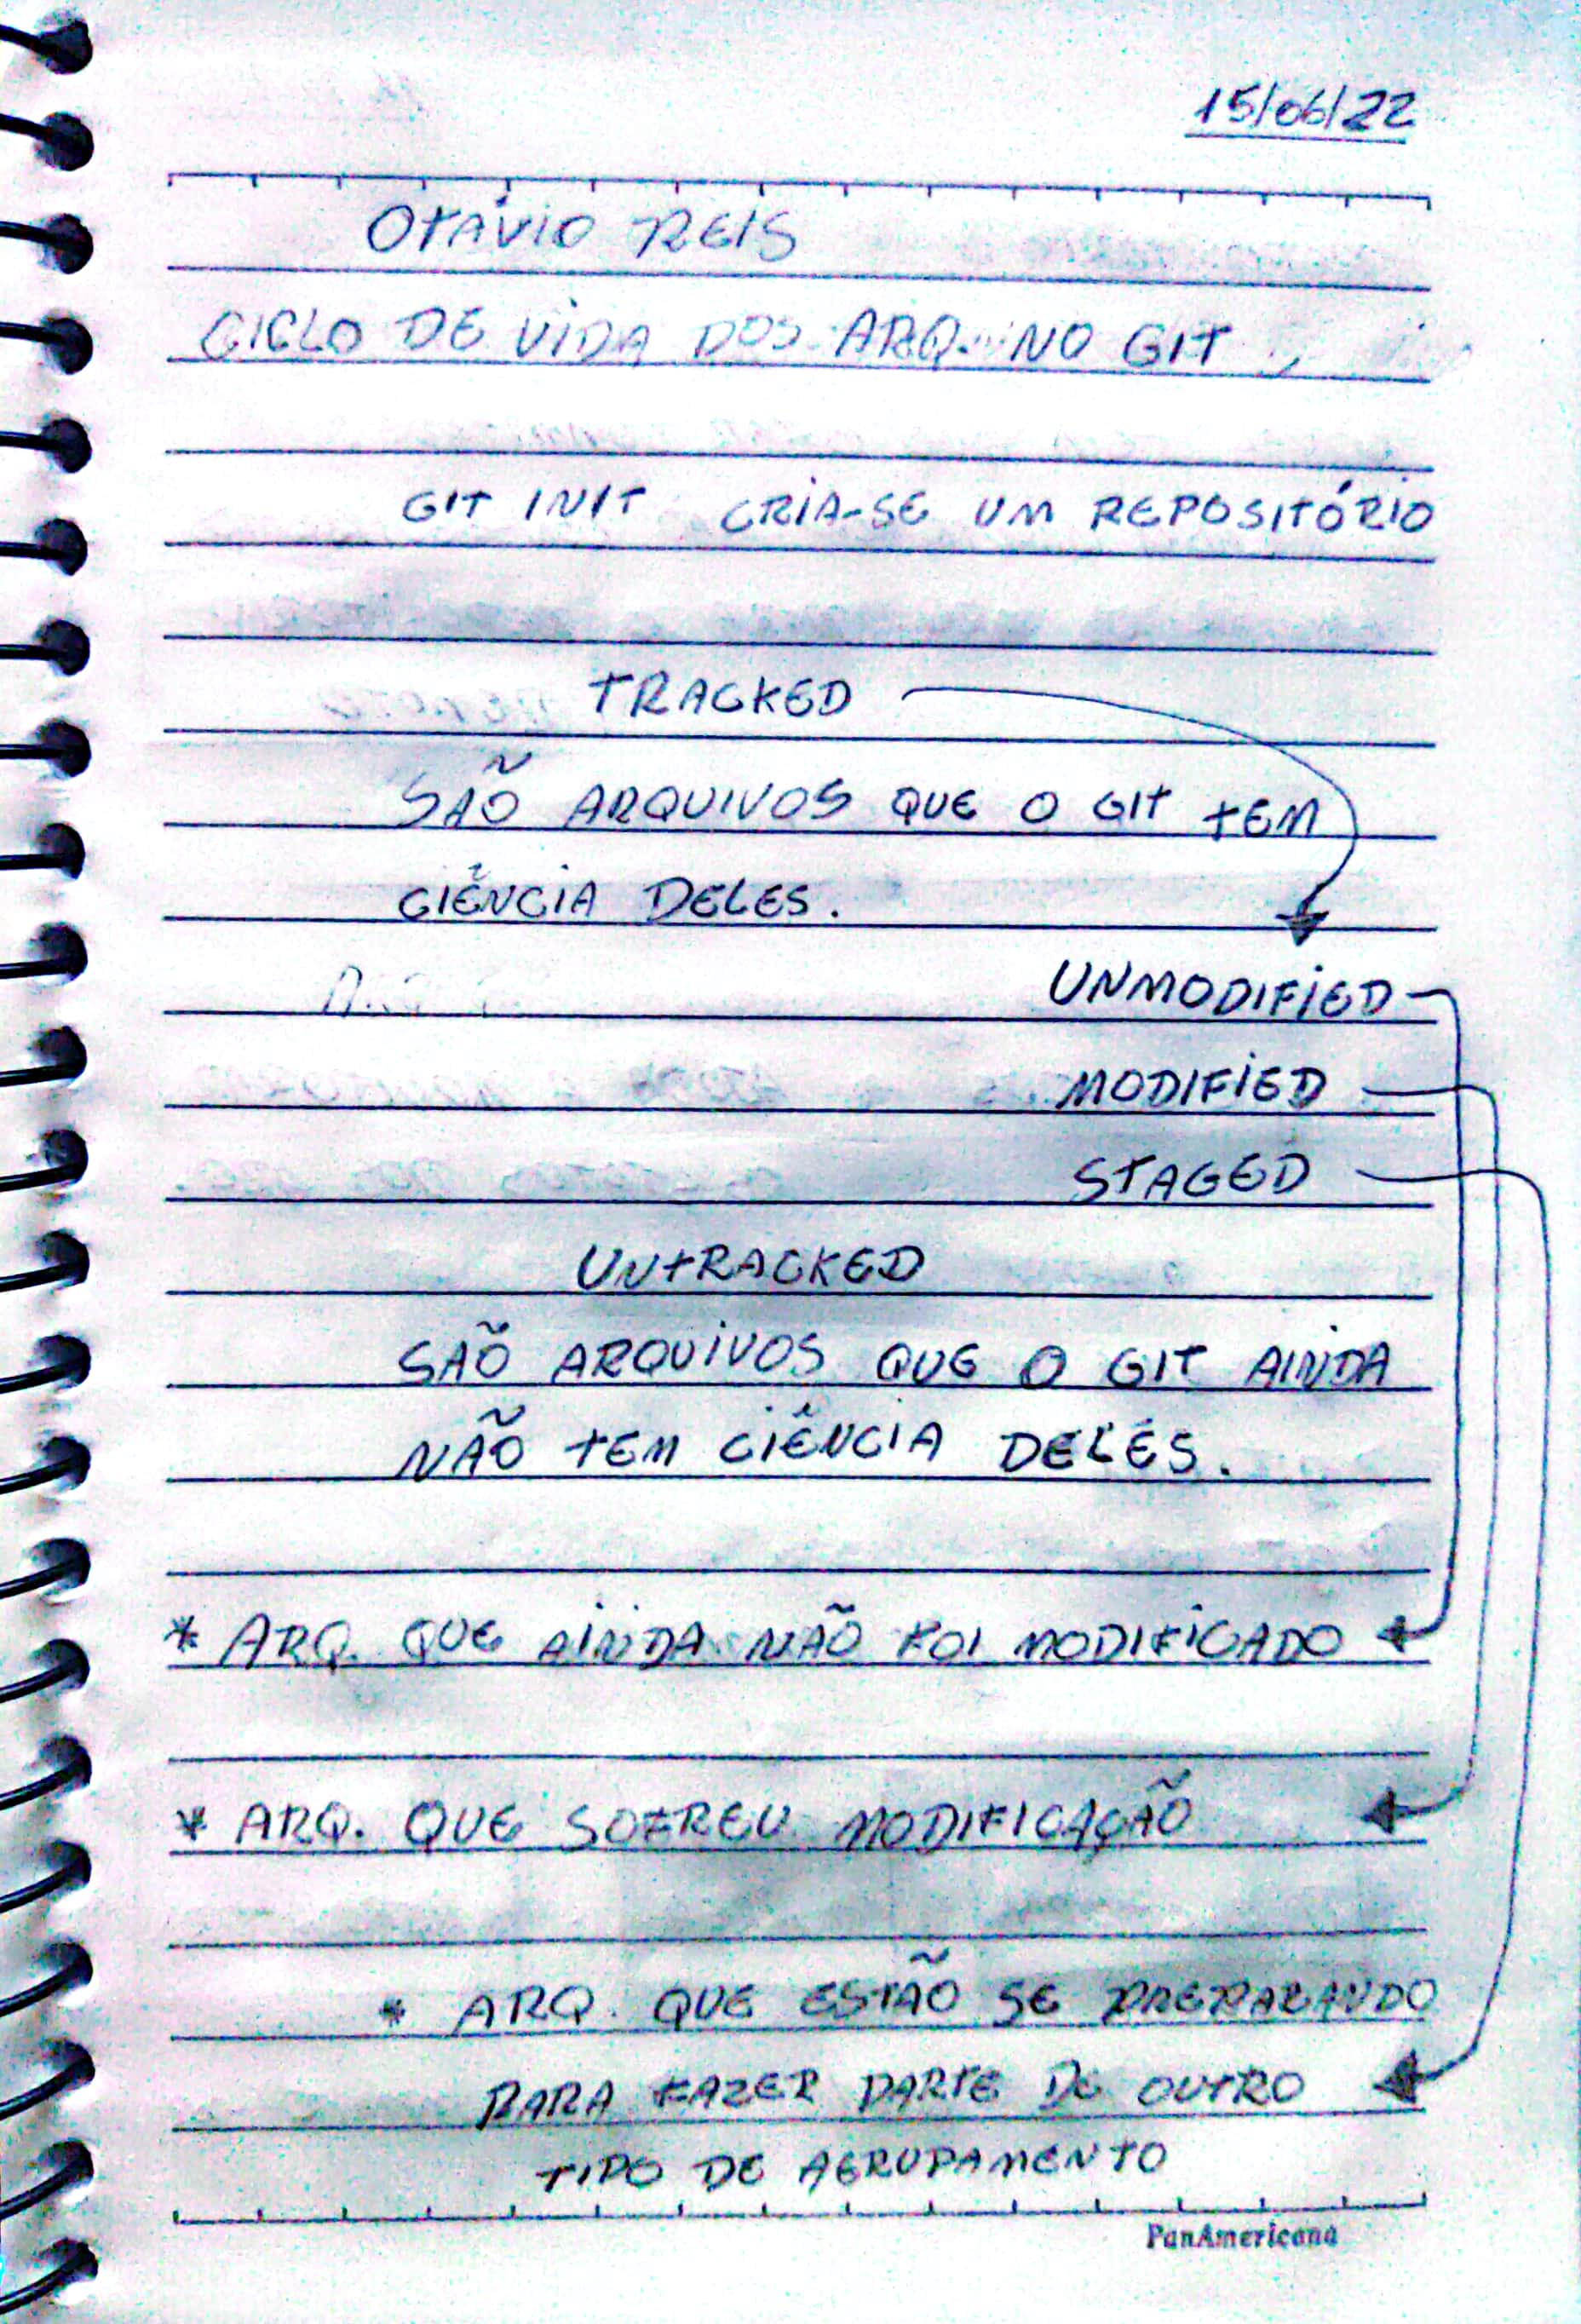 15/06/22
OTÁVIO REIS
CICLO DE VIDA DOS ARQ. NO GIT
GIT INIT CRIA-SE UM REPOSITÓRIO
TRACKED
SÃO ARQUIVOS QUE O GIT TEM
CIÊNCIA DELES.
UNMODIFIED
MODIFIED
STAGED
UNTRACKED
SÃO ARQUIVOS QUE O GIT AINDA
NÃO TEM CIÊNCIA DELES.
* ARQ. QUE AINDA NÃO FOI MODIFICADO
* ARQ. QUE SOFREU MODIFICAÇÃO
* ARQ. QUE ESTÃO SE PREPARANDO
PARA FAZER PARTE DE OUTRO
TIPO DE AGRUPAMENTO
PanAmericana